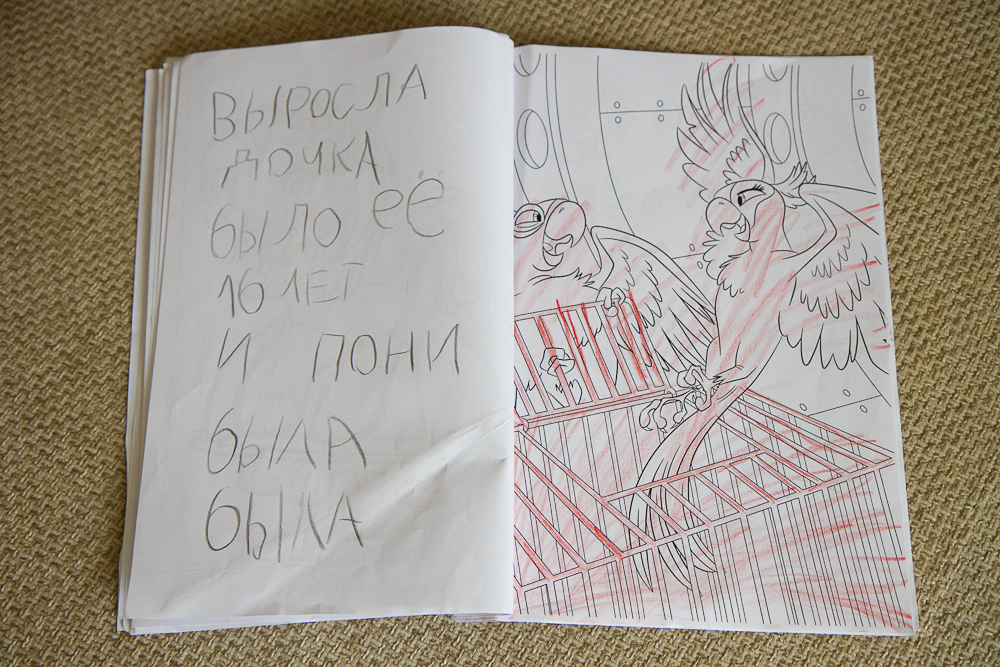 ВЫРОСЛА
ДОЧКА
БЫЛО ЕЁ
16 ЛЕТ
И ПОНИ
БЫЛА
БЫЛА